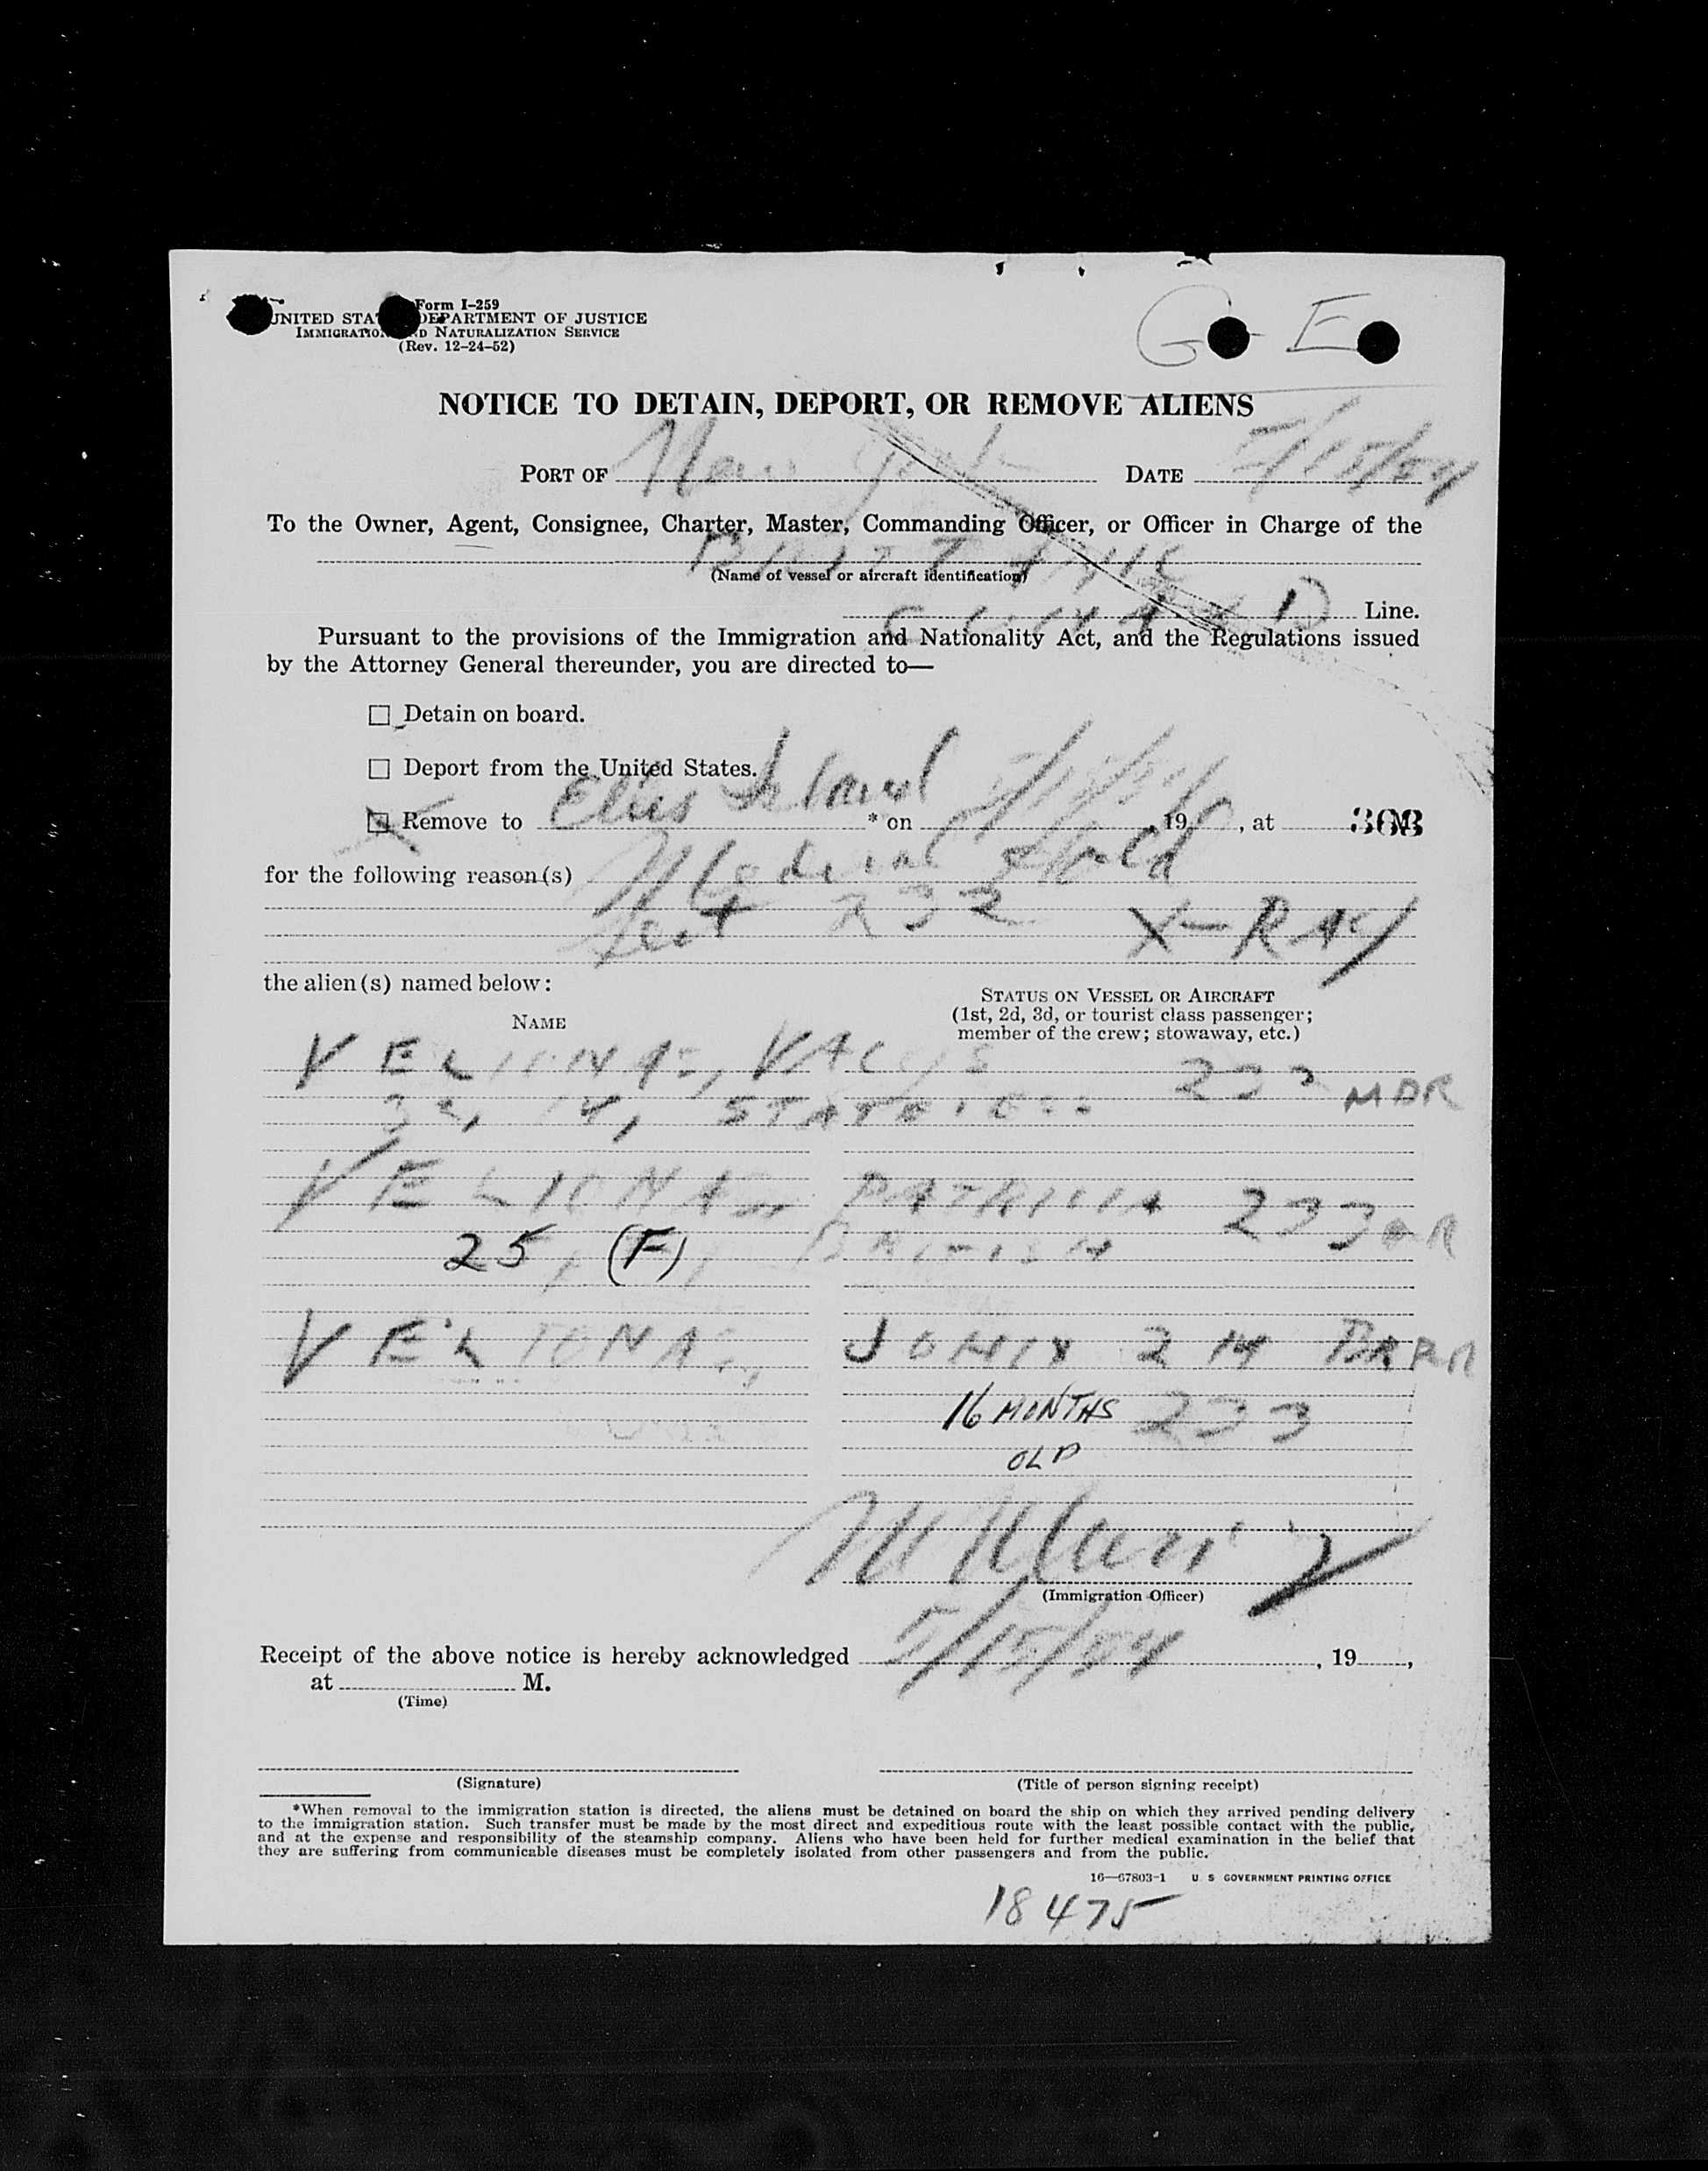 Form I-259
UNITED STA DEPARTMENT OF JUSTICE
IMMIGRATION AND NATURALIZATION SERVICE
(Rev. 12-24-52)
G E
NOTICE TO DETAIN, DEPORT, OR REMOVE ALIENS
PORT OF New York DATE 5/15/54
To the Owner, Agent, Consignee, Charter, Master, Commanding Officer, or Officer in Charge of the
BRITTANIC
(Name of vessel or aircraft identification)
CUNARD Line.
Pursuant to the provisions of the Immigration and Nationality Act, and the Regulations issued
by the Attorney General thereunder, you are directed to—
☐ Detain on board.
☐ Deport from the United States.
☒ Remove to Ellis Island * on 5/15/54, 19, at M.
for the following reason(s) Medical Hold
Sect 232 X-RAY
the alien(s) named below:
NAME
STATUS ON VESSEL OR AIRCRAFT
(1st, 2d, 3d, or tourist class passenger;
member of the crew; stowaway, etc.)
VELIONAS, 233 MDR
M, STATELESS
VELIONAS PATRICIA 233
25, (F), BRITISH
VELIONAS, 2 M
16 MONTHS 233
OLD
(Immigration Officer)
Receipt of the above notice is hereby acknowledged 5/15/54, 19,
at M.
(Time)
(Signature)
(Title of person signing receipt)
*When removal to the immigration station is directed, the aliens must be detained on board the ship on which they arrived pending delivery
to the immigration station. Such transfer must be made by the most direct and expeditious route with the least possible contact with the public,
and at the expense and responsibility of the steamship company. Aliens who have been held for further medical examination in the belief that
they are suffering from communicable diseases must be completely isolated from other passengers and from the public.
16—67803-1 U. S GOVERNMENT PRINTING OFFICE
18475